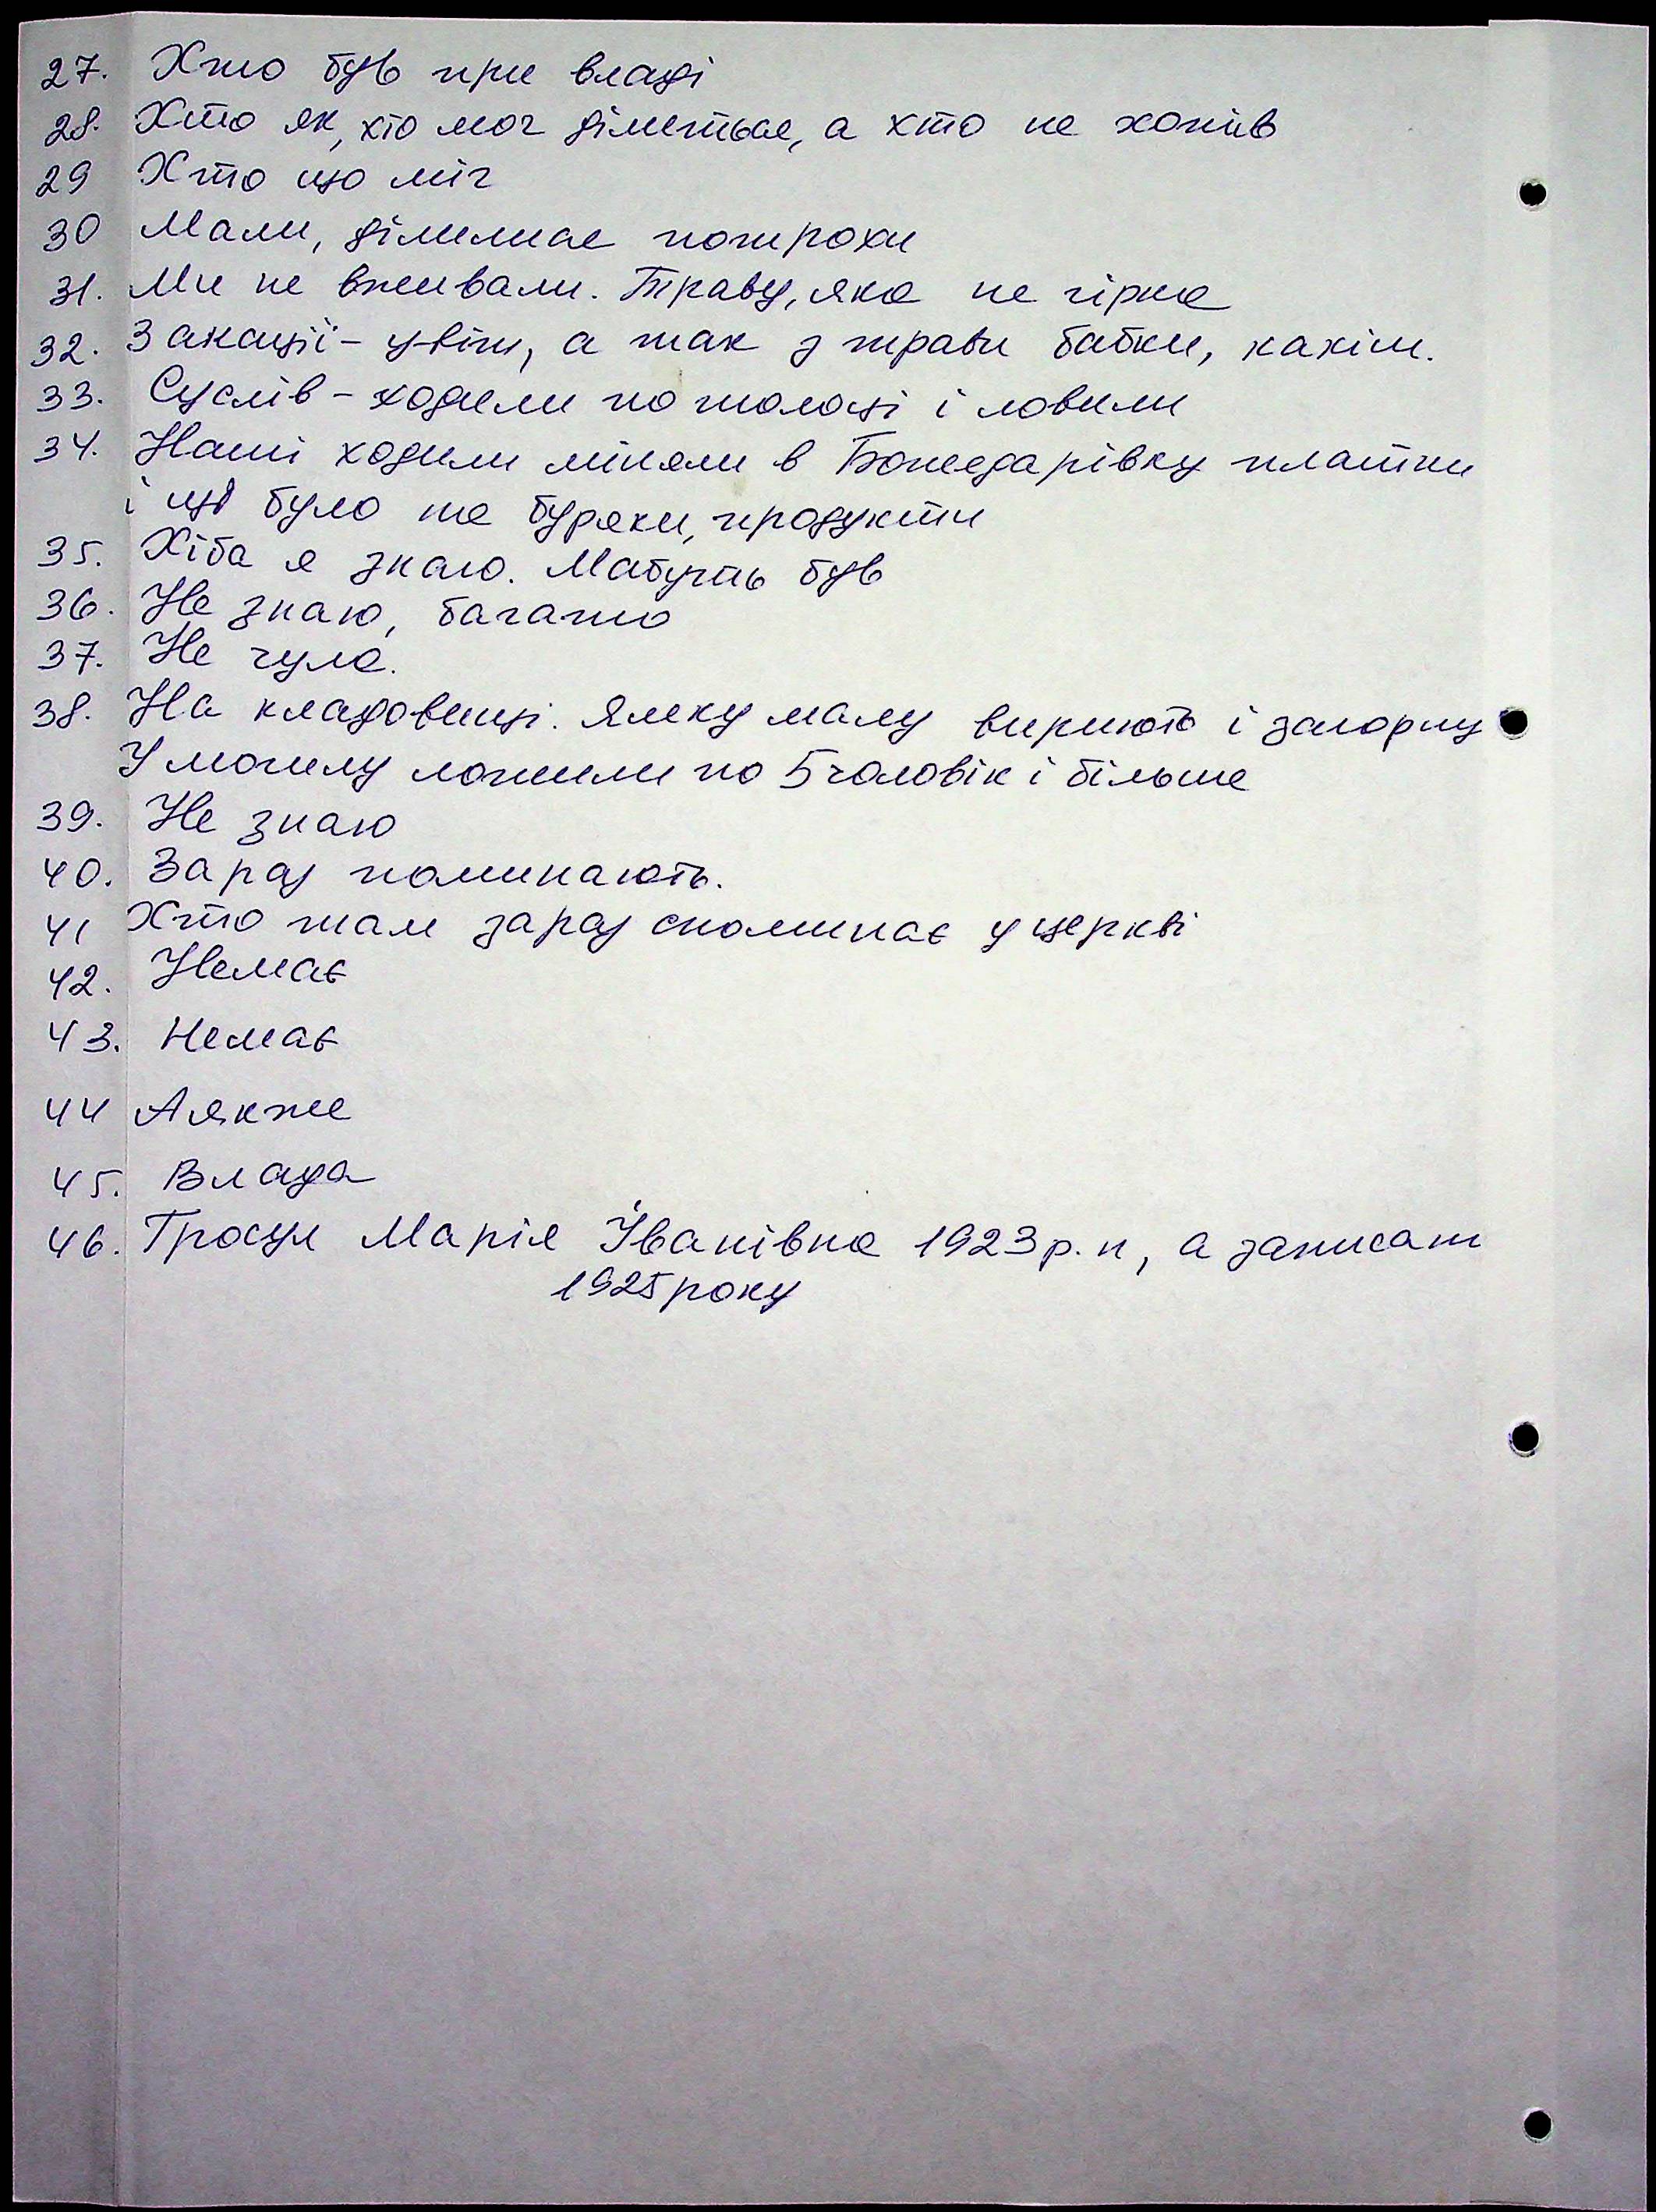 27. Хто був при владі
28. Хто як, хто мог ділиться, а хто не хотів
29 Хто що міг
30 Мали, ділилися потрохи
31. Ми не вживали. Траву, яка не гірка
32. З акації - цвіт, а так з трави бабки, кахіи.
33. Суслів - ходили по толоці і ловили
34. Наші ходили міняли в Божедарівку платки
і що було на буряки, продукти
35. Хіба я знаю. Мабуть був
36. Не знаю, багато
37. Не чула.
38. На кладовищі. Ямку малу вириють і загорну
У могилу ложили по 5 чоловік і більше
39. Не знаю
40. Зараз поминають.
41 Хто там зараз споминає у церкві
42. Немає
43. Немає
44 Аякже
45. Влада
46. Тросул Марія Іванівна 1923 р. н, а записат
1925 року